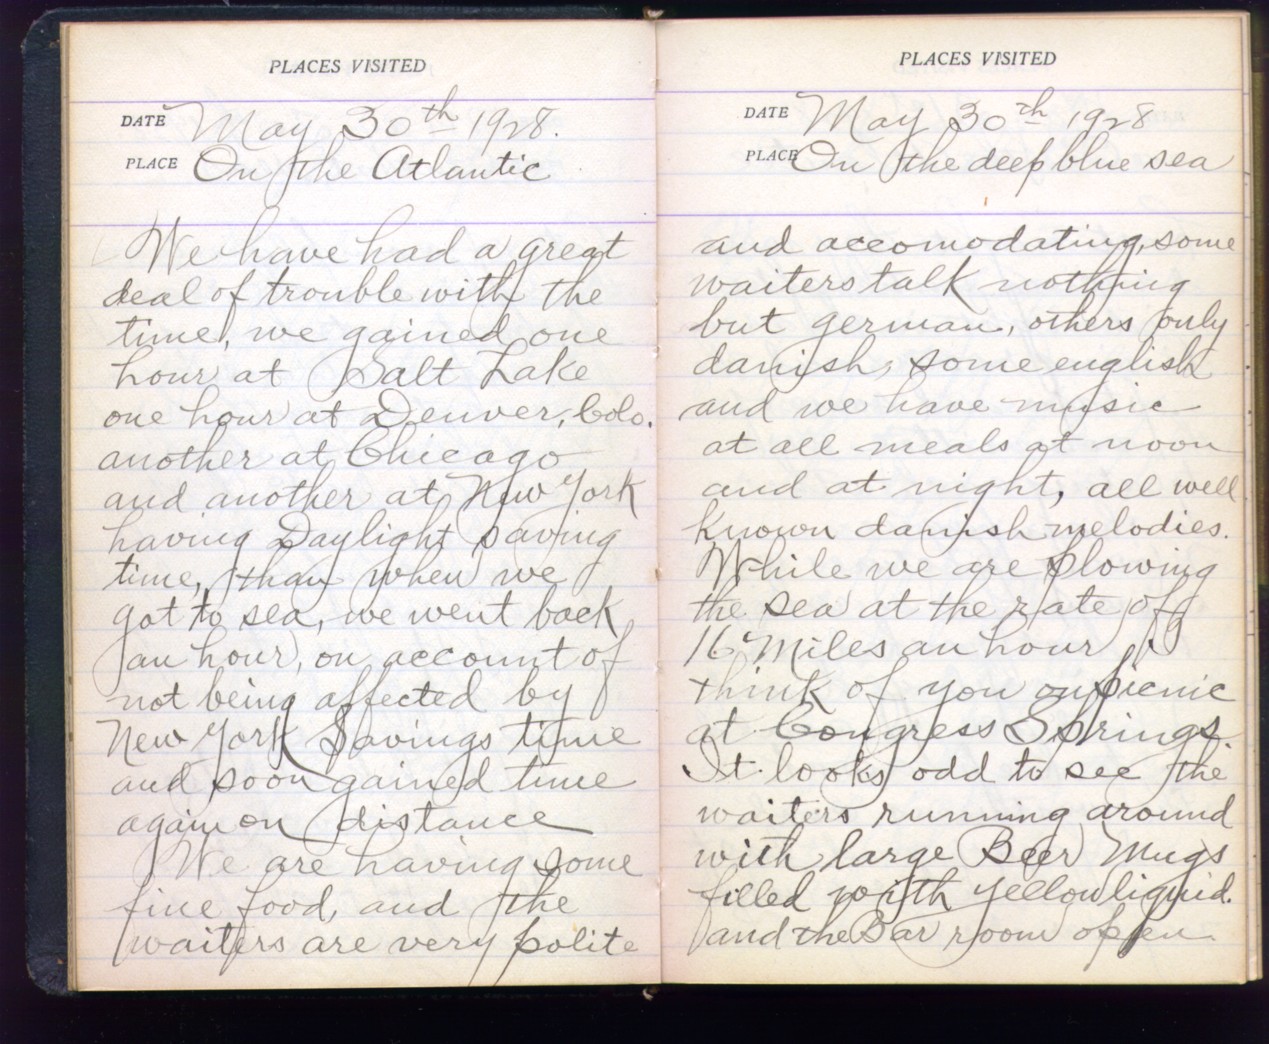 PLACES VISITED
DATE May 30th 1928.
PLACE On the Atlantic
We have had a great
deal of trouble with the
time, we gained one
hour at Salt Lake
one hour at Denver, Colo.
another at Chicago
and another at New York
having Daylight saving
time, than when we
got to sea, we went back
an hour, on account of
not being affected by
New York Savings time
and soon gained time
again on distance
We are having some
fine food, and the
waiters are very polite
PLACES VISITED
DATE May 30th 1928
PLACE On the deep blue sea
and accomodating, some
waiters talk nothing
but german, others only
danish, some english
and we have music
at all meals at noon
and at night, all well
known danish melodies.
While we are plowing
the sea at the rate of
16 Miles an hour, I
think of you on picnic
at Congress Springs.
It looks odd to see the
waiters running around
with large Beer Mugs
filled with yellow liquid.
and the Bar room open.